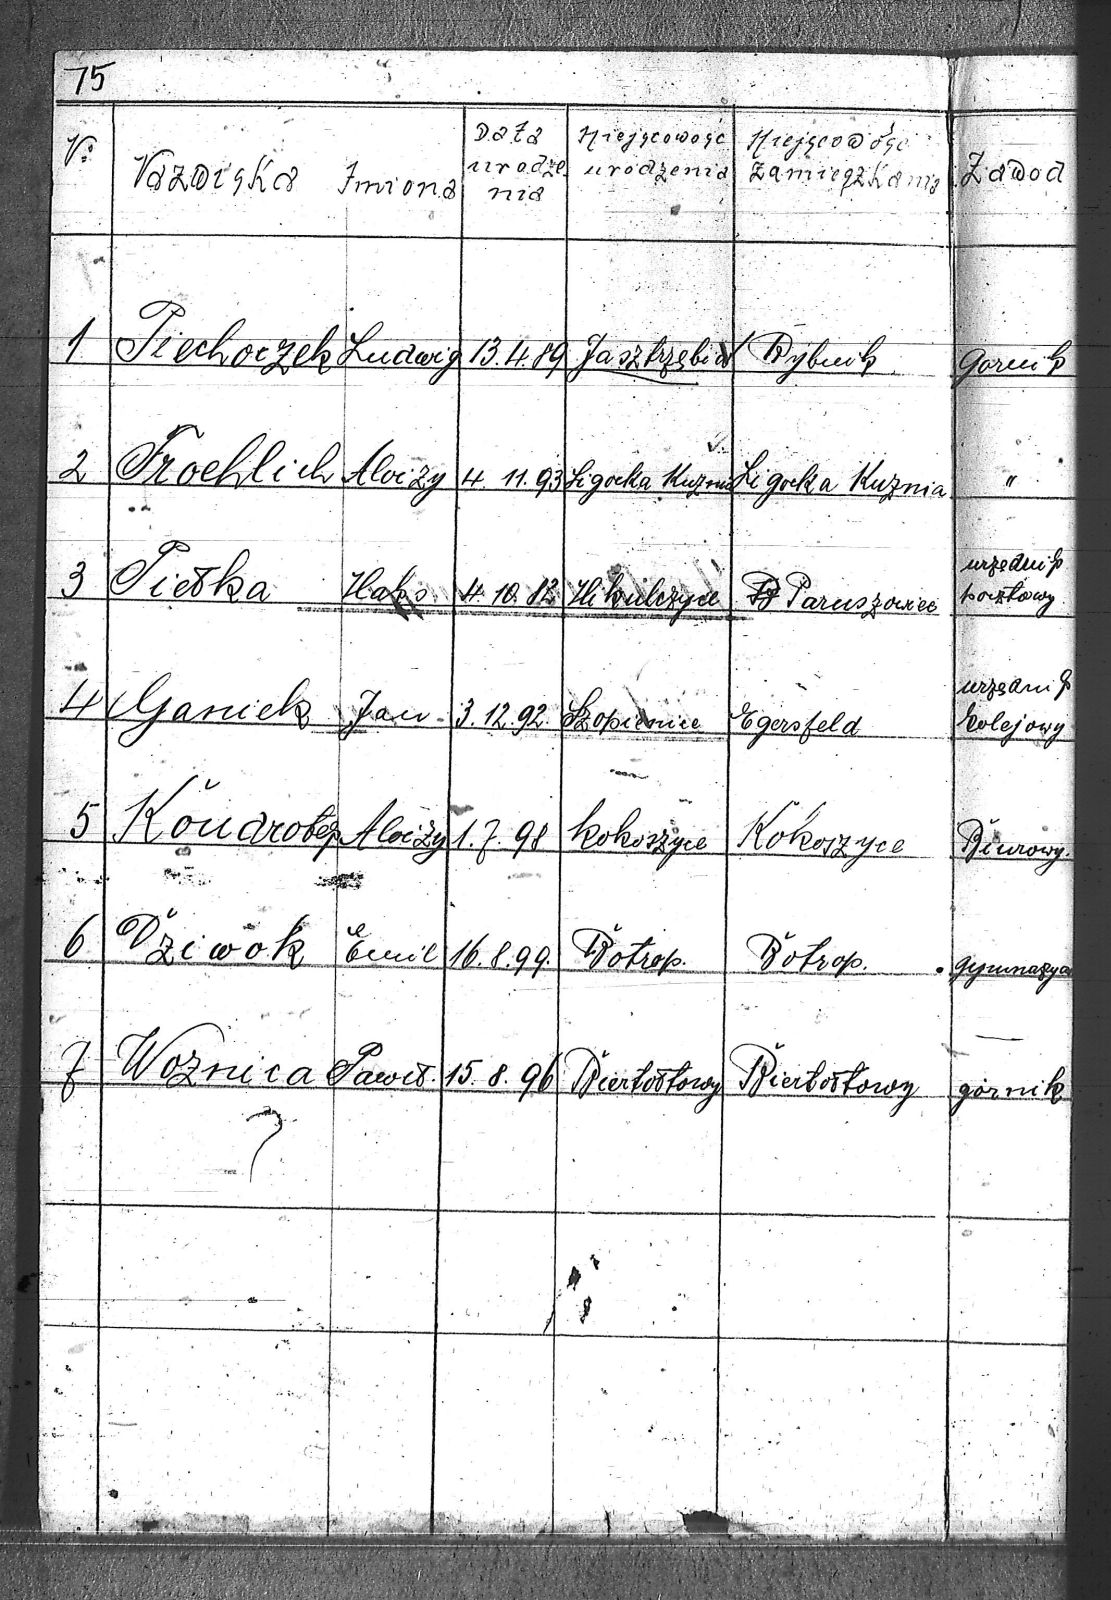 75
Nº Nazwiska Imiona Data urodzenia Miejscowość urodzenia Miejscowość zamieszkania Zawod
1 Piechoczek Ludwig 13.4.89 Jastrzębia Rybnik Gornik
2 Froehlich Aloizy 4.11.93 Ligocka Kuznia Ligocka Kuznia "
3 Pietka 4.10.82 Mikulczyce Paruszowiec urzędnik pocztowy
4 Ganiek Jan 3.12.92. Szopienice Egersfeld urzędnik kolejowy
5 Aloizy 1.7.98 Kokoszyce Kokoszyce Biurowy.
6 Dziwok Emil 16.8.99. Botrop. Botrop. gymnazya
7 Woznica Paweł. 15.8.96 Biertołtowy Biertołtowy górnik